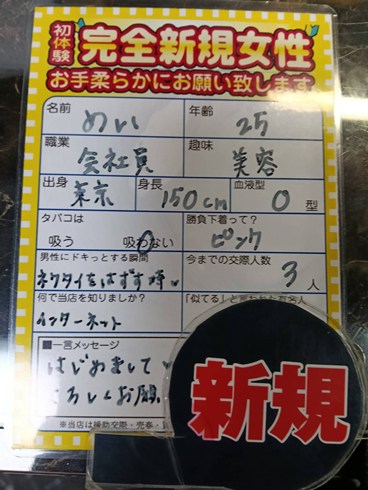 初体験
完全新規女性
お手柔らかにお願い致します
名前 めい 年齢 25
職業 会社員 趣味 美容
出身 東京 身長 150cm 血液型 O 型
タバコは 勝負下着って?
吸う 吸わない ピンク
男性にドキっとする瞬間 今までの交際人数
ネクタイをはずす時 3人
何で当店を知りましたか? 「似てる」と言われた有名人
インターネット
■一言メッセージ
はじめまして
よろしくお願
※当店は援助交際・売春・
新規